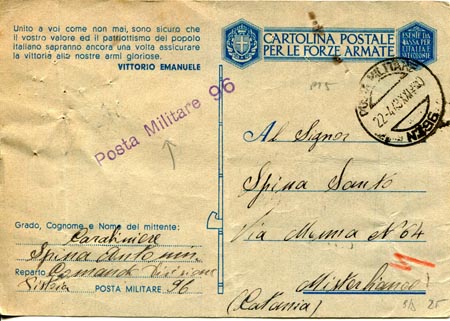 Unito a voi come non mai, sono sicuro che
il vostro valore ed il patriottismo del popolo
italiano sapranno ancora una volta assicurare
la vittoria alle nostre armi gloriose.
VITTORIO EMANUELE
Posta Militare 96
Grado, Cognome e Nome del mittente:
Carabiniere
Spina Antonino
Reparto Comando Divisione
POSTA MILITARE 96
CARTOLINA POSTALE
PER LE FORZE ARMATE
ESENTE DA
TASSA PER
L'ITALIA E
COLONIE
POSTA MILITARE
N.96
Al Signor
Spina Santo
Via Merma N° 64
Misterbianco
(Catania)
25